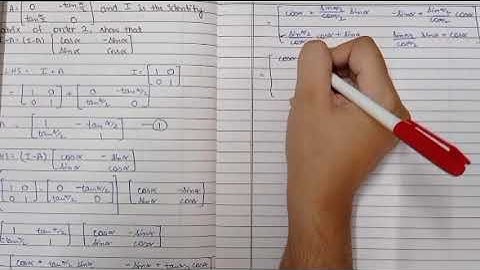 A = [ 0 -tan α/2
tan α/2 0 ] and I is the identity
matrix of order 2, show that
I+A = (I-A) [ cosα -sinα
sinα cosα ]
LHS = I + A I = [ 1 0
0 1 ]
= [ 1 0
0 1 ] + [ 0 -tan α/2
tan α/2 0 ]
A = [ 1 -tan α/2
tan α/2 1 ] — ①
RHS = (I-A) [ cosα -sinα
sinα cosα ]
[ 1 0
0 1 ] - [ 0 -tan α/2
tan α/2 0 ] [ cosα -sinα
sinα cosα ]
[ 1 tan α/2
-tan α/2 1 ] [ cosα -sinα
sinα cosα ]
[ cosα + tan α/2 sinα -sinα + tan α/2 cosα
= [ cosα + sin α/2 / cos α/2 sinα -sinα + sin α/2 / cos α/2 cosα
- sin α/2 / cos α/2 cosα + sinα sin α/2 / cos α/2 sinα + cosα ]
= [ cosα